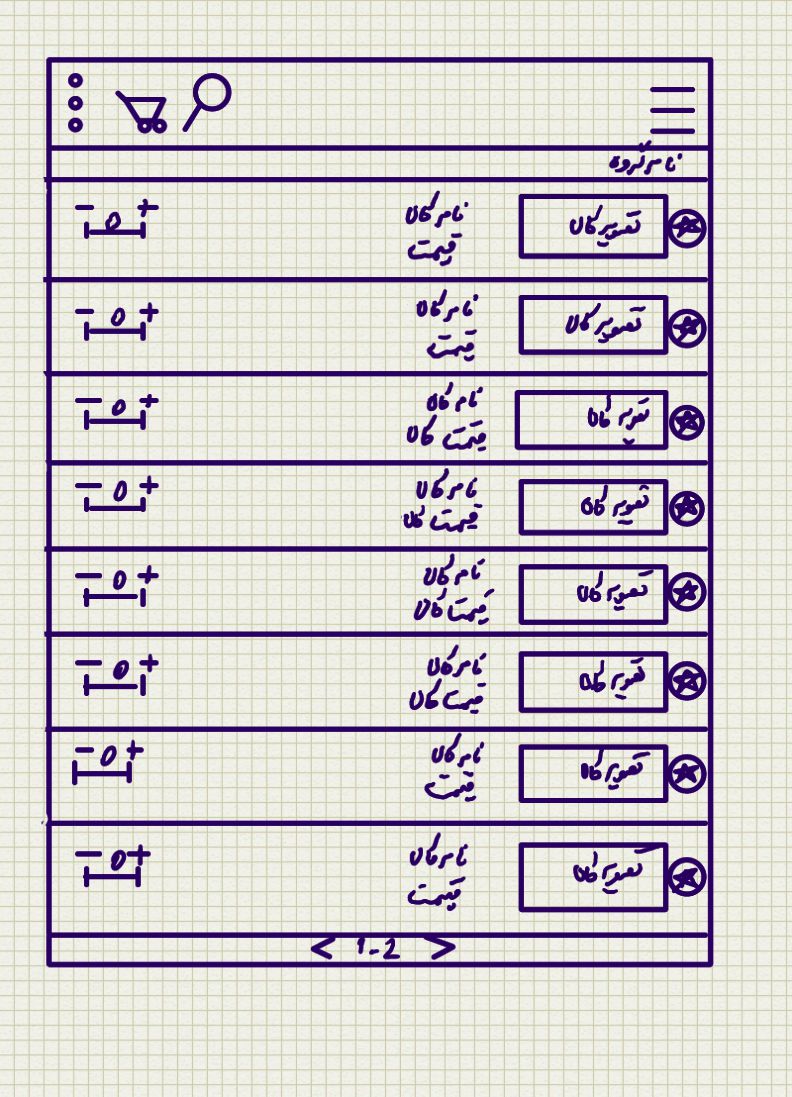 نام گروه
تصویر کالا
نام کالا
قیمت
- 0 +
تصویر کالا
نام کالا
قیمت
- 0 +
تصویر کالا
نام کالا
قیمت کالا
- 0 +
تصویر کالا
نام کالا
قیمت کالا
- 0 +
تصویر کالا
نام کالا
قیمت کالا
- 0 +
تصویر کالا
نام کالا
قیمت کالا
- 0 +
تصویر کالا
نام کالا
قیمت
- 0 +
تصویر کالا
نام کالا
قیمت
- 0 +
< 1-2 >